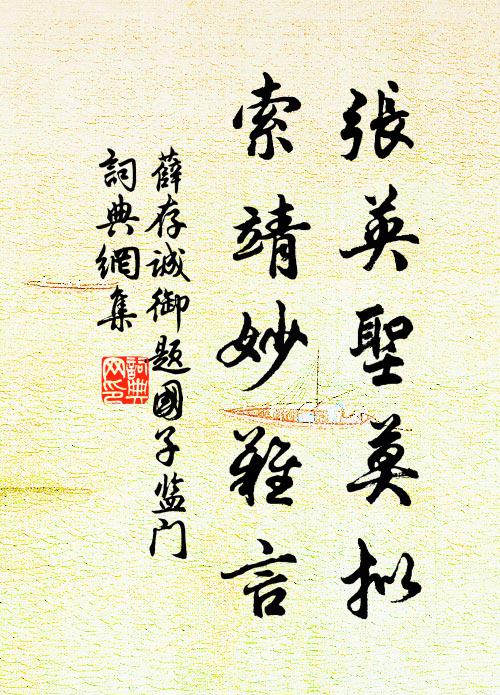 張英聖莫拟
索靖妙難言
薛存誠御题國子监门
詞典網集
詞典网印